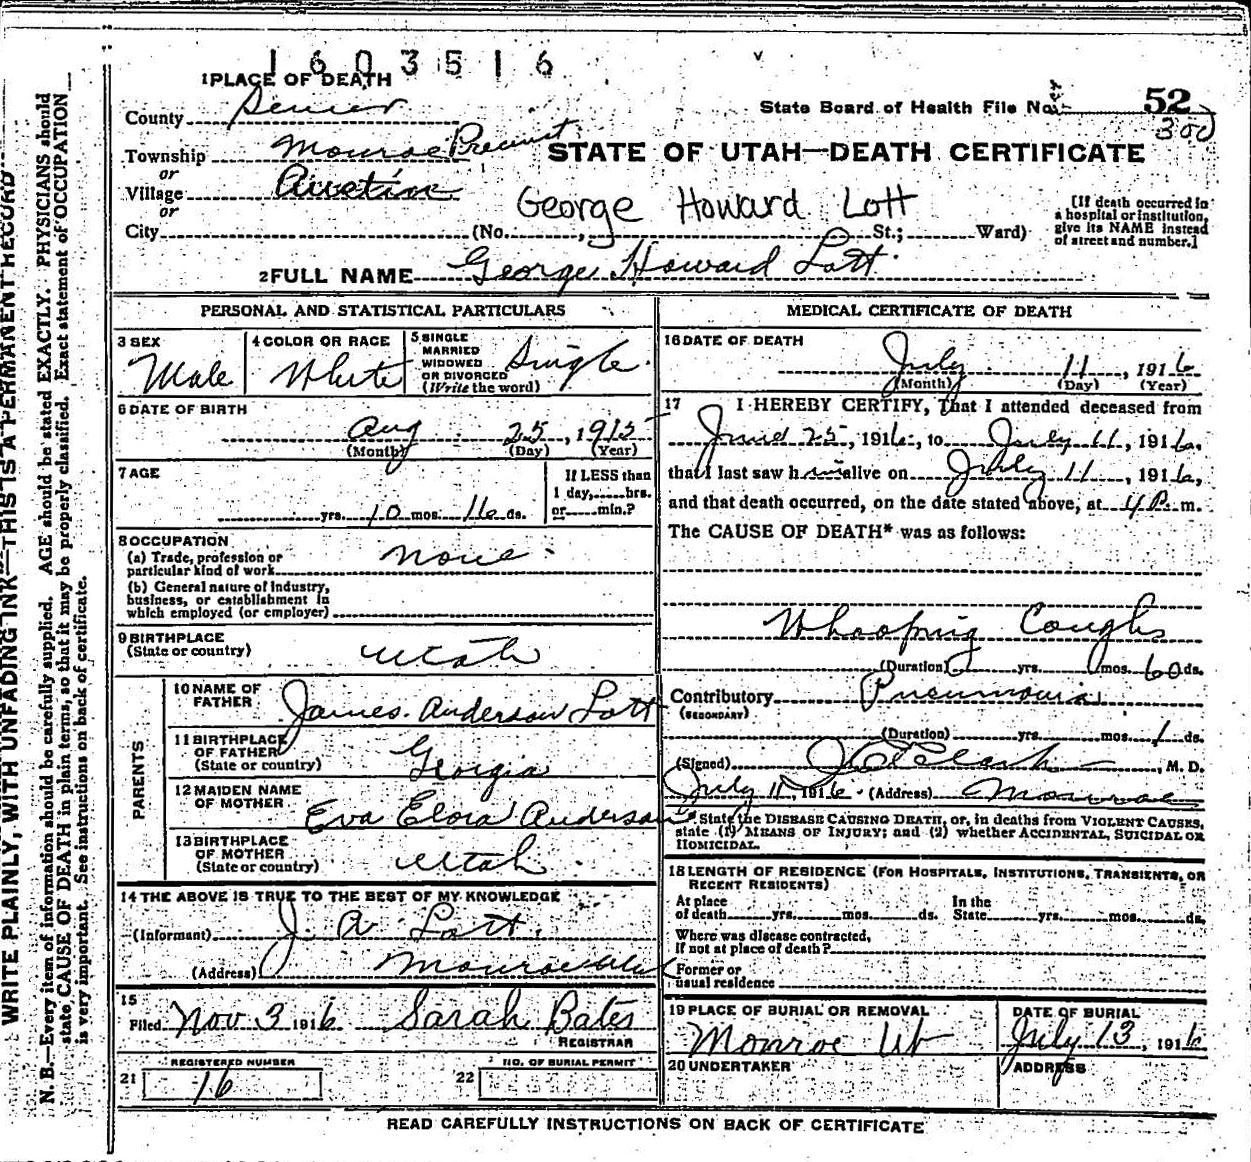 1603516
1 PLACE OF DEATH
County Sevier
State Board of Health File No. 52
300
Township Monroe Precinct
or
Village
or
STATE OF UTAH—DEATH CERTIFICATE
George Howard Lott
City (No. , St.; Ward)
[If death occurred in
a hospital or institution,
give its NAME instead
of street and number.]
2 FULL NAME George Howard Lott
PERSONAL AND STATISTICAL PARTICULARS
3 SEX
Male
4 COLOR OR RACE
White
5 SINGLE
MARRIED
WIDOWED
OR DIVORCED
(Write the word)
Single
6 DATE OF BIRTH
Aug 25, 1915
(Month) (Day) (Year)
7 AGE
yrs. 10 mos. 16 ds.
If LESS than
1 day, hrs.
or min.?
8 OCCUPATION
(a) Trade, profession or
particular kind of work none
(b) General nature of industry,
business, or establishment in
which employed (or employer)
9 BIRTHPLACE
(State or country) Utah
PARENTS
10 NAME OF
FATHER James Anderson Lott
11 BIRTHPLACE
OF FATHER
(State or country) Georgia
12 MAIDEN NAME
OF MOTHER Eva Elora Anderson
13 BIRTHPLACE
OF MOTHER
(State or country) Utah
14 THE ABOVE IS TRUE TO THE BEST OF MY KNOWLEDGE
(Informant) J. A. Lott.
(Address) Monroe Utah
15
Filed Nov 3 1916 Sarah Bates
REGISTRAR
REGISTERED NUMBER
21 16
NO. OF BURIAL PERMIT
22
MEDICAL CERTIFICATE OF DEATH
16 DATE OF DEATH
July 11, 1916
(Month) (Day) (Year)
17 I HEREBY CERTIFY, That I attended deceased from
June 25, 1916, to July 11, 1916,
that I last saw him alive on July 11, 1916,
and that death occurred, on the date stated above, at 4 P. m.
The CAUSE OF DEATH* was as follows:
Whooping Coughs
(Duration) yrs. mos. 60 ds.
Contributory Pneumonia
(SECONDARY)
(Duration) yrs. mos. 1 ds.
(Signed) , M. D.
July 11, 1916 (Address) Monroe
* State the DISEASE CAUSING DEATH, or, in deaths from VIOLENT CAUSES,
state (1) MEANS OF INJURY; and (2) whether ACCIDENTAL, SUICIDAL OR
HOMICIDAL.
18 LENGTH OF RESIDENCE (FOR HOSPITALS, INSTITUTIONS, TRANSIENTS, OR
RECENT RESIDENTS)
At place
of death yrs. mos. ds.
In the
State yrs. mos. ds.
Where was disease contracted,
if not at place of death?
Former or
usual residence
19 PLACE OF BURIAL OR REMOVAL
Monroe Ut
DATE OF BURIAL
July 13, 1916
20 UNDERTAKER
ADDRESS
READ CAREFULLY INSTRUCTIONS ON BACK OF CERTIFICATE
WRITE PLAINLY, WITH UNFADING INK—THIS IS A PERMANENT RECORD
N. B.—Every item of information should be carefully supplied. AGE should be stated EXACTLY. PHYSICIANS should
state CAUSE OF DEATH in plain terms, so that it may be properly classified. Exact statement of OCCUPATION
is very important. See instructions on back of certificate.